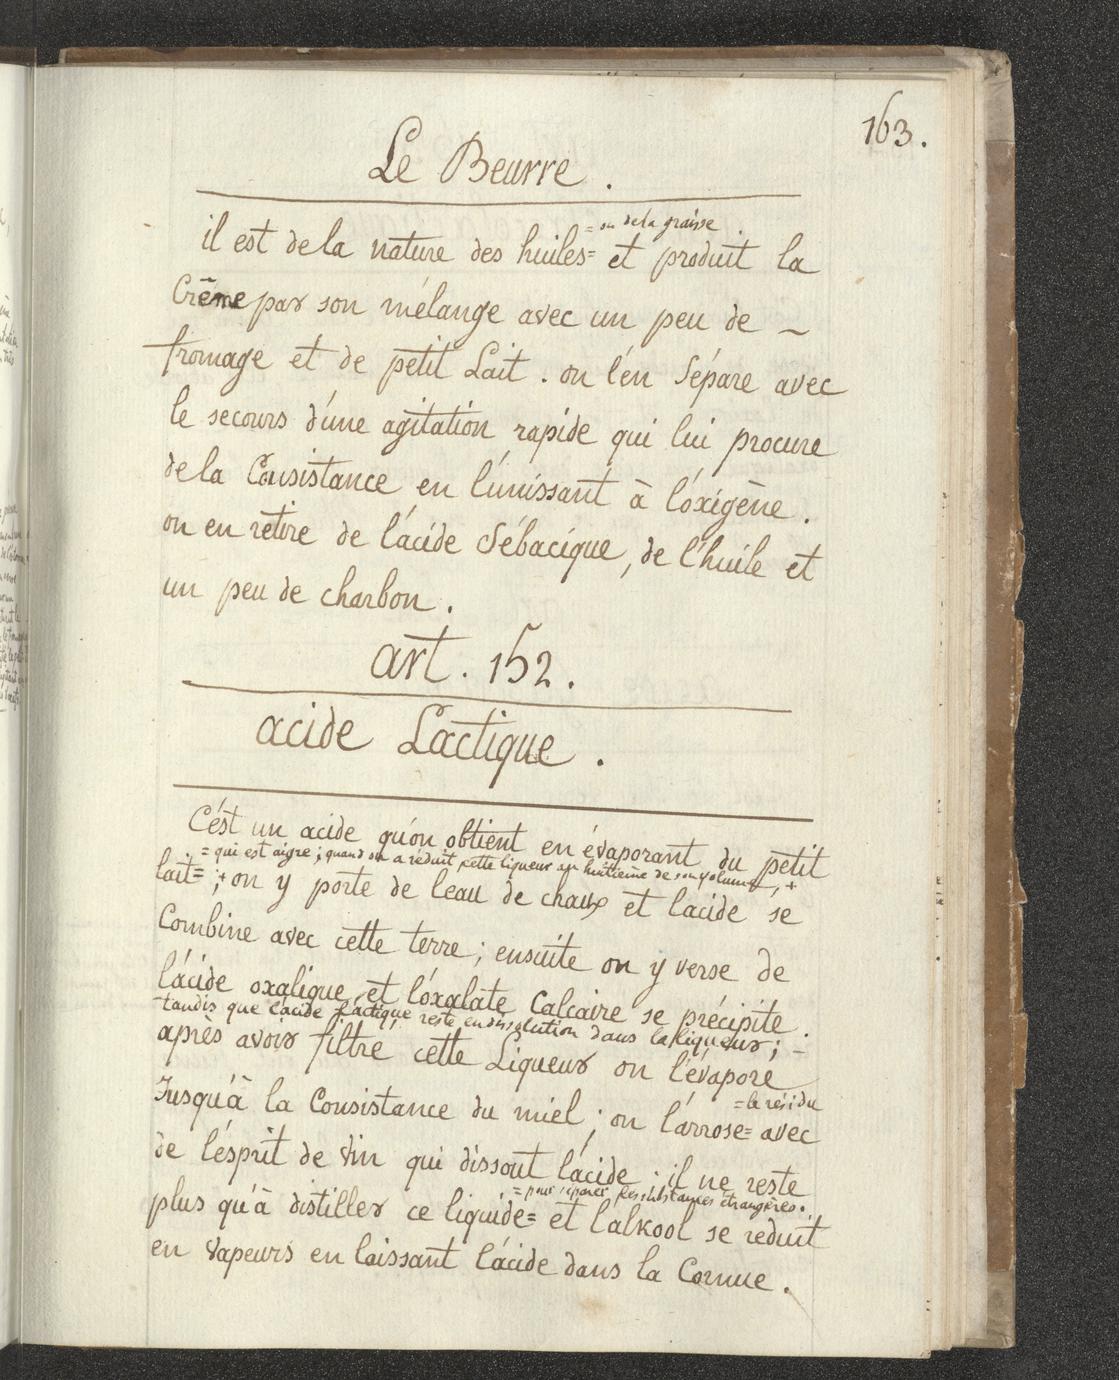 163.
Le Beurre .
= ou de la graisse .
il est de la nature des huiles= et produit la
Crême par son mélange avec un peu de –
fromage et de petit Lait . on l'én Sépare avec
le secours d'úne agitation rapide qui lui procure
de la Consistance en l'únissant à l'óxigène .
on en retire de l'ácide Sébacique, de l'huile et
un peu de charbon .
art . 152 .
acide Lactique .
C'ést un acide qu'on obtient en évaporant du petit
= qui est aigre ; quand on a réduit cette liqueur au huitième de son volume, +
lait= ;+ on y porte de leau de chaux et lacide se
Combine avec cette terre ; ensuite on y verse de
l'ácide oxalique et l'óxalate Calcaire se précipite .
tandis que l'ácide Lactique reste en dissolution dans la Liqueur ; –
après avoir filtre cette Liqueur on l'évapore
= le résidu
Jusqu'à la Consistance du miel ; on l'árrose= avec
de l'ésprit de Vin qui dissout l'ácide ; il ne reste
= pour séparer les substances étrangères .
plus qu'à distiller ce liquide= et l'alkool se reduit
en Vapeurs en laissant l'ácide dans la Cornue .